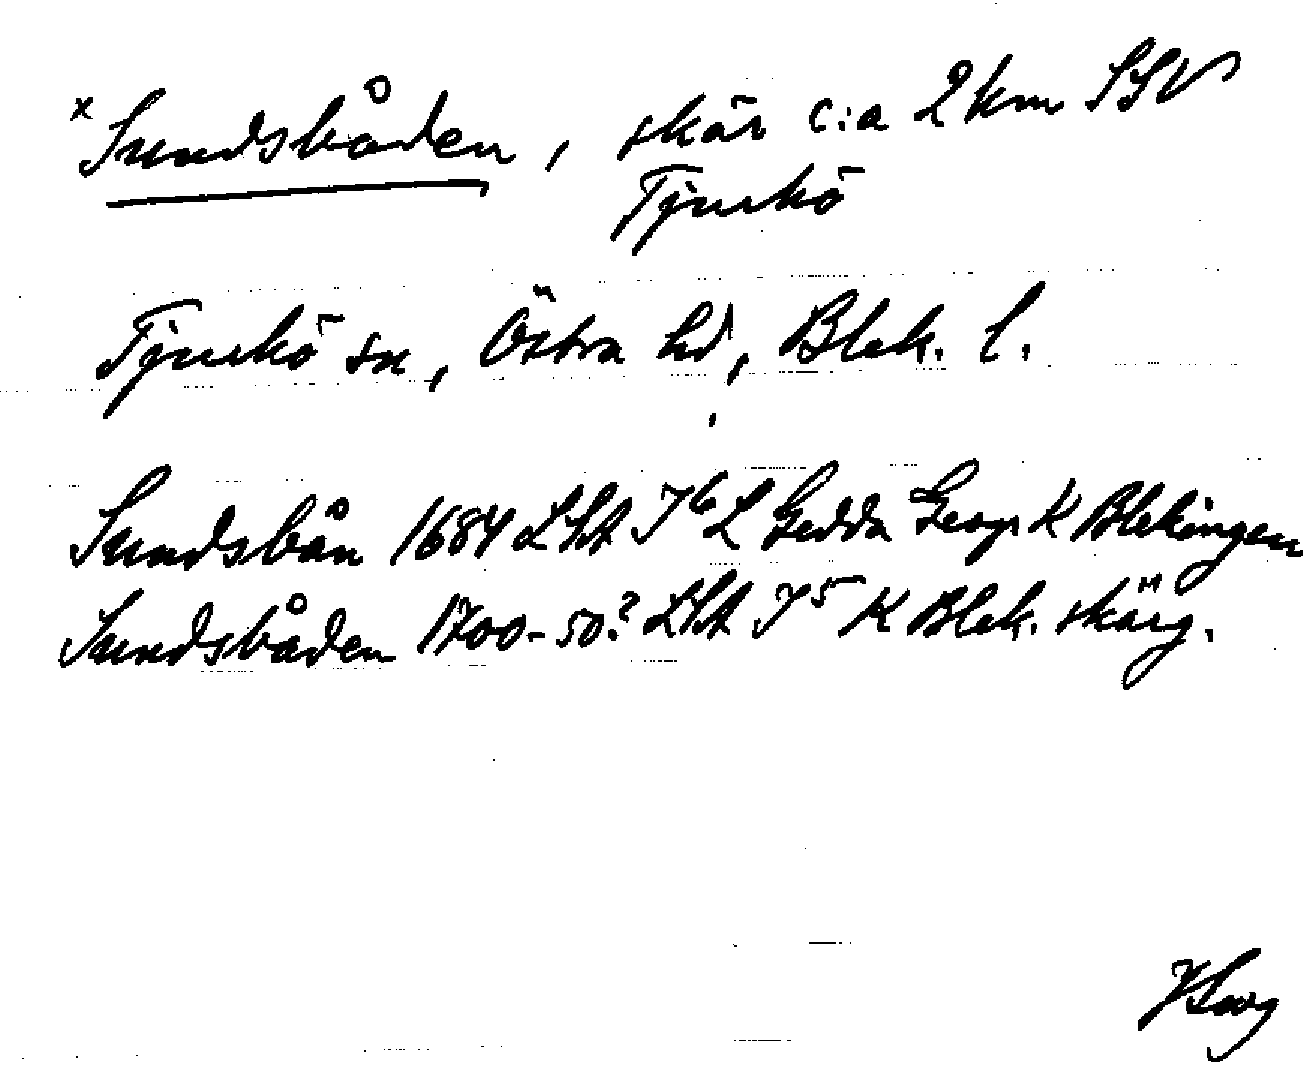 x Sundsbåden, skär c:a 2 km SSV
Tjurkö
Tjurkö sn, Östra hd, Blek. l.
Sundsbån 1684 LSA J6 L Gedda Geogr K Blekingen
Sundsbåden 1700-50? LSA J5 K Blek. skärg.